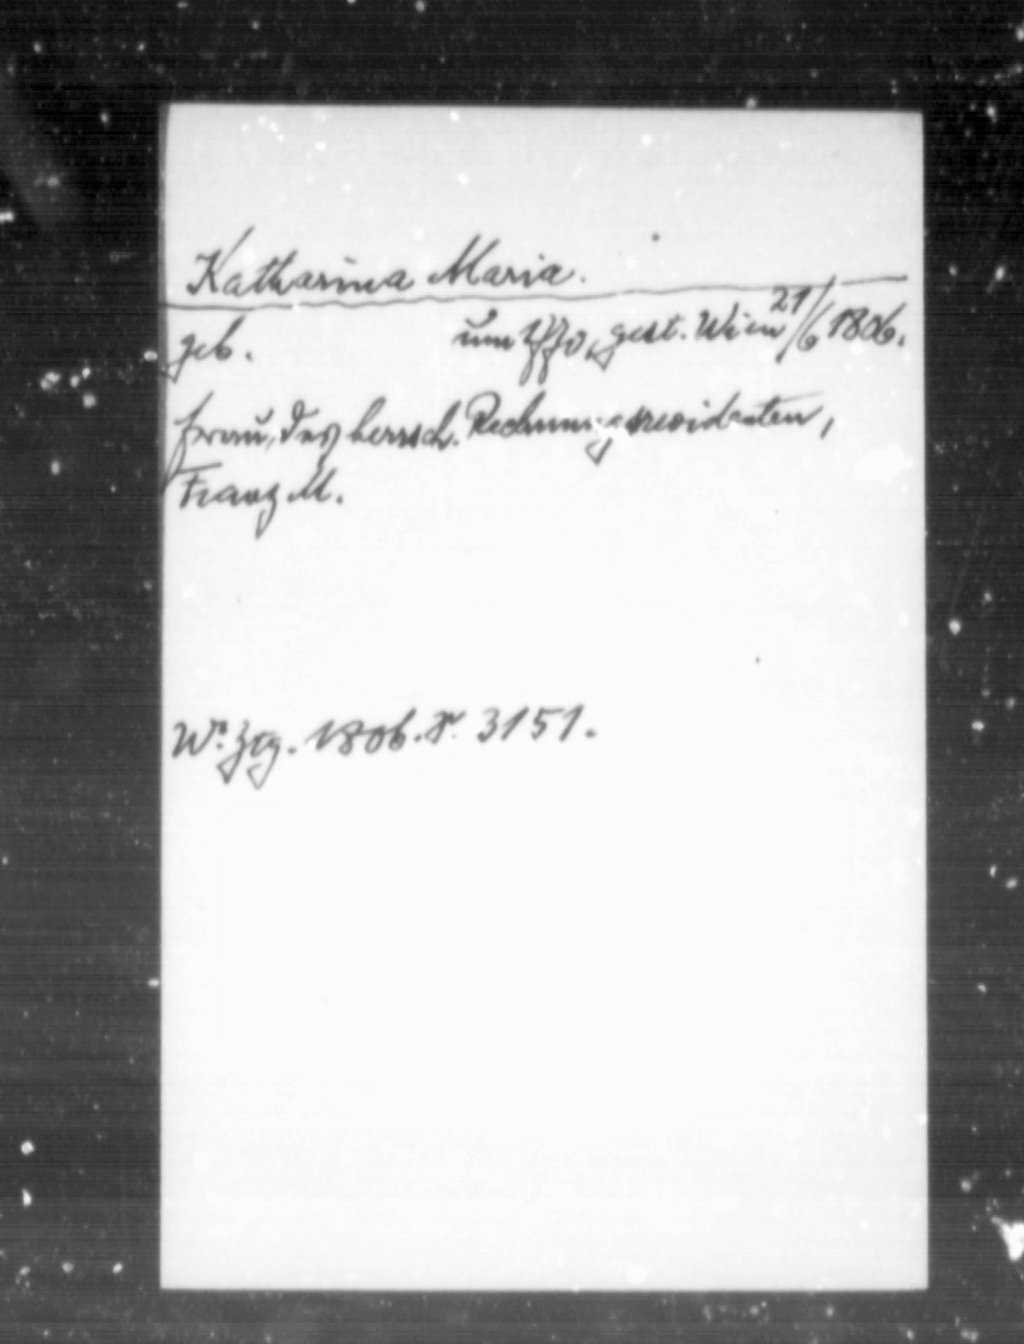 Katharina Maria.
geb. um 1770, gest. Wien 21/6 1806.
Frau des herrsch. Rechnungsrevidenten,
Franz M.
Wr. Ztg. 1806. S. 3151.